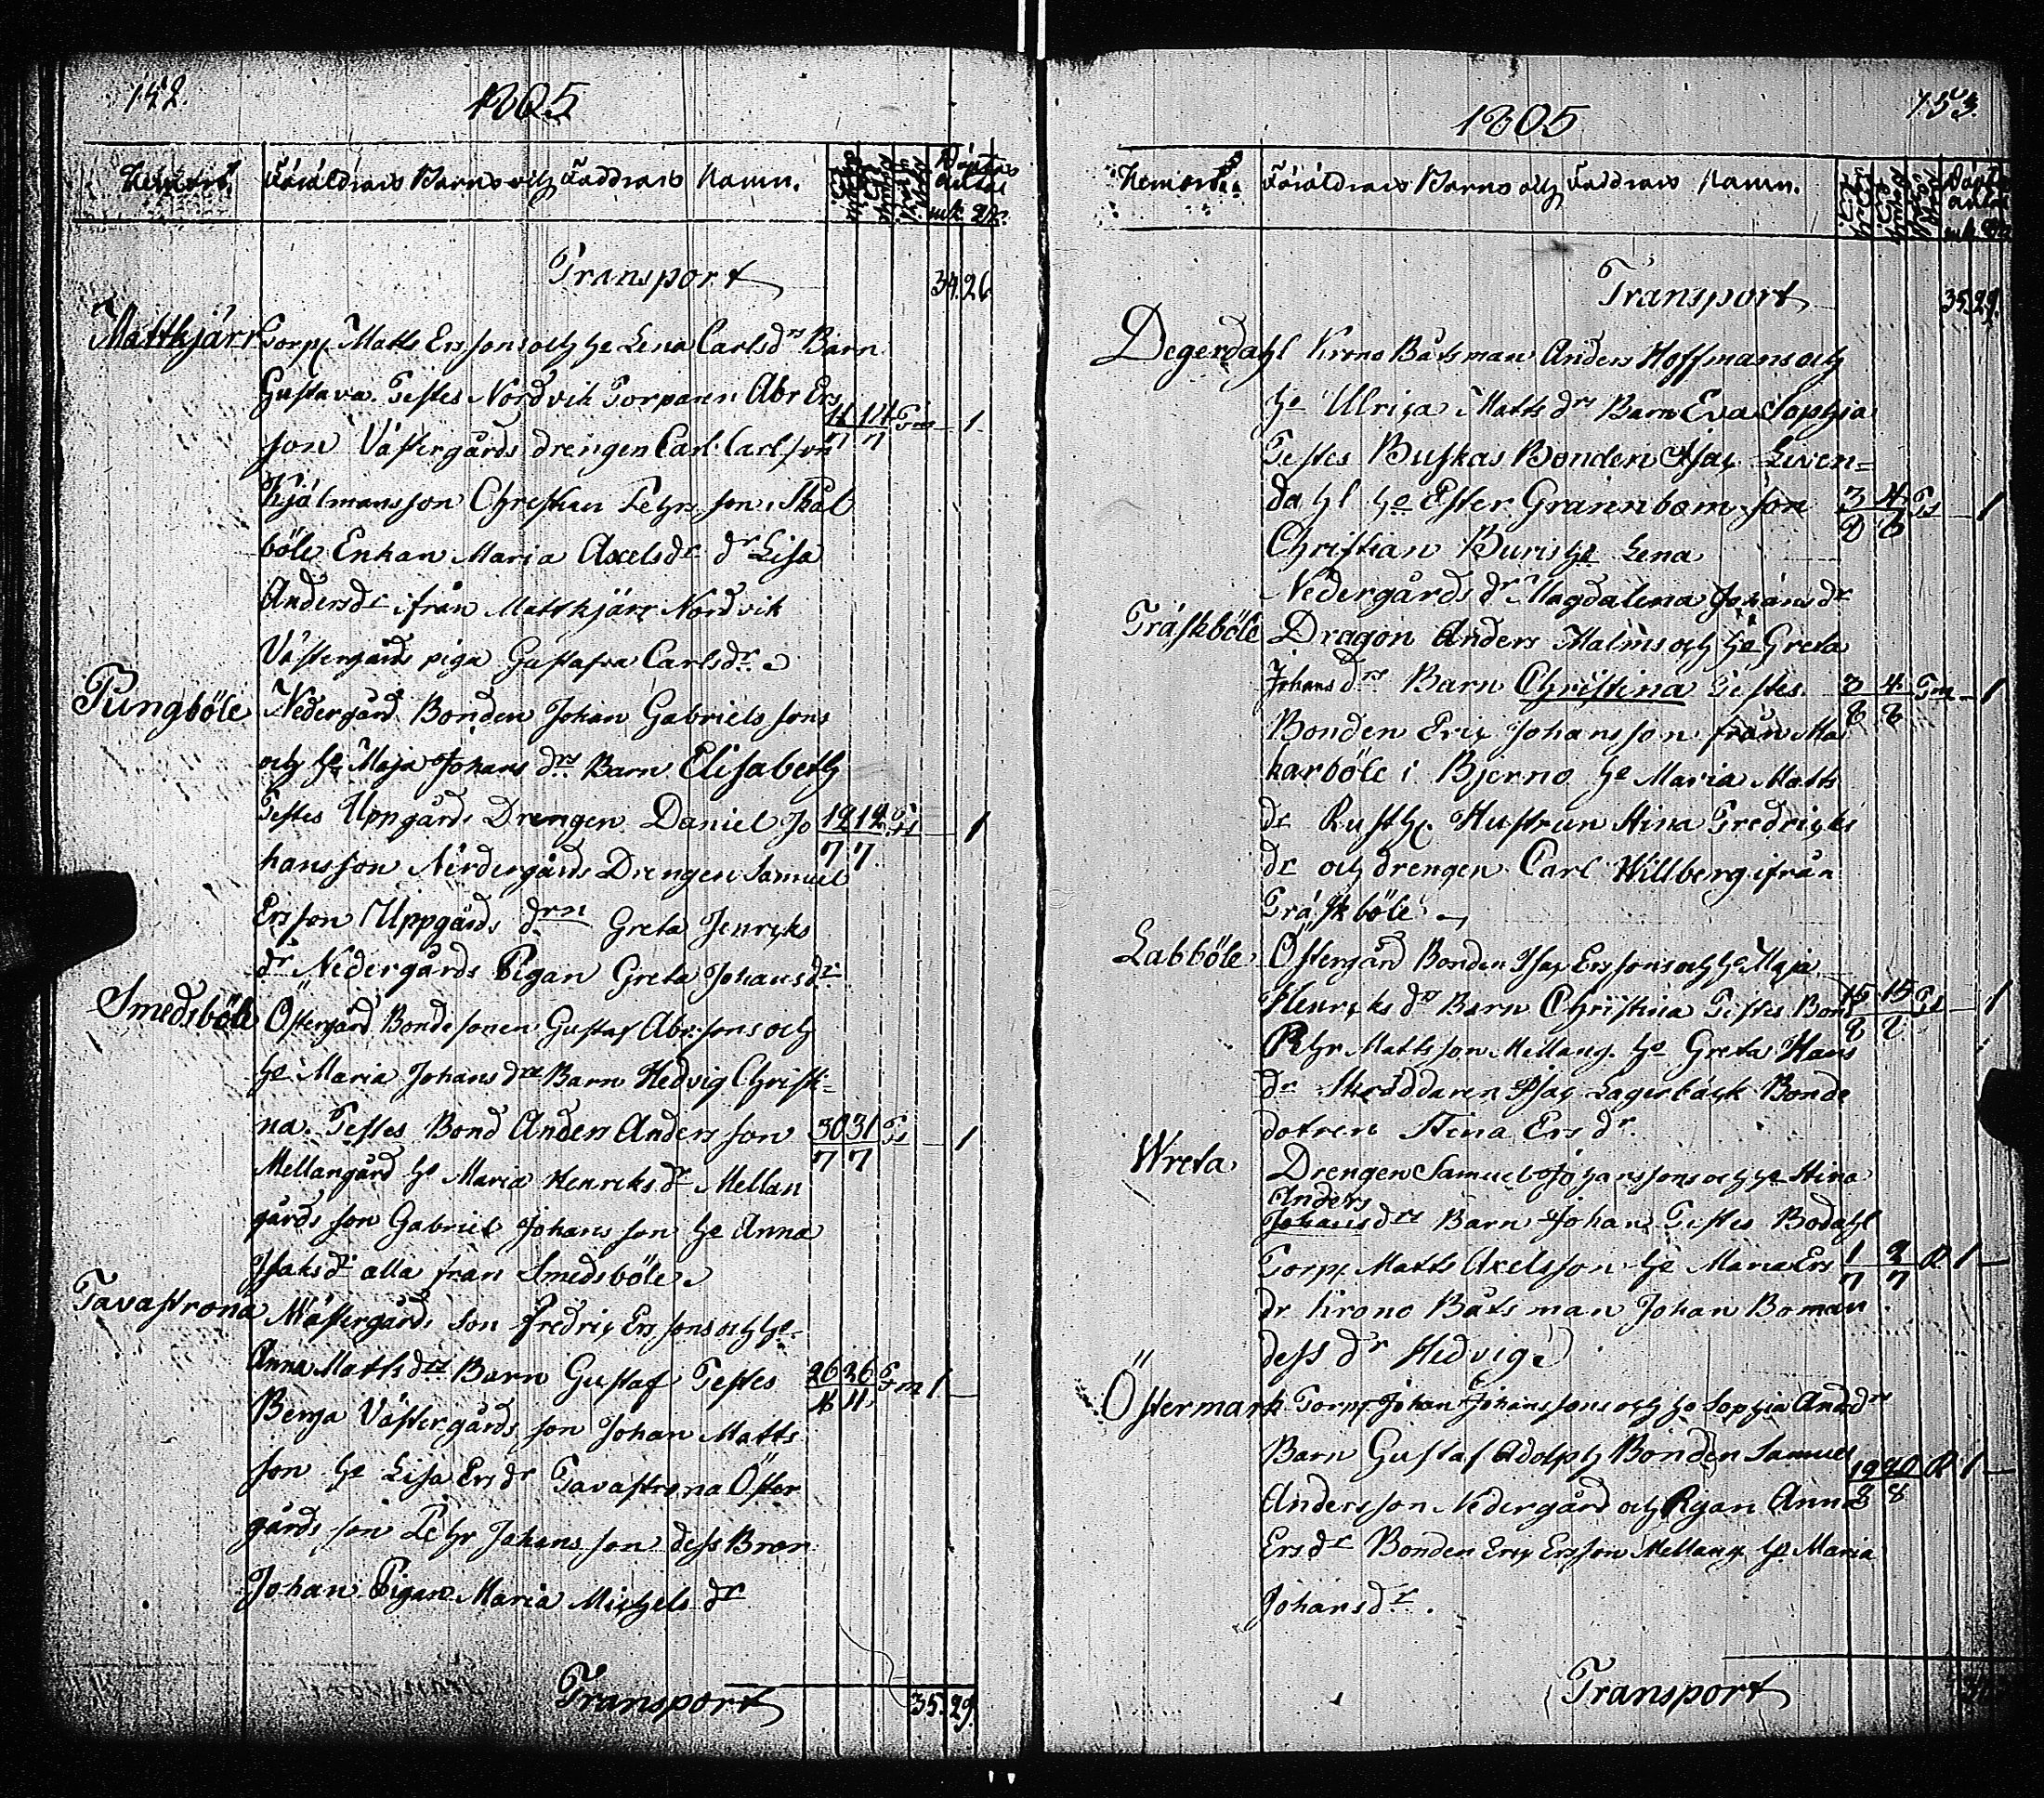 152.
1805
Hemort. Föräldrars Barns och Faddrars Namn. Döptas antal
mk. qk.
Transport 34. 26.
Mattkjärr Torp. Matts Erssons och he Lena Carlsdrs Barn
Gustava. Testes Nordvik Torparen Abr Ers
son Västergårds drengen Carl Carlsson 14/7 14/7 Fm 1
Kjälmansson Christian Pehrsson Skål
böle Enkan Maria Axelsdr dr Lisa
Andersdr ifrån Mattkjärr Nordvik
Västergårds piga Gustafva Carlsdr
Pungböle Nedergård Bonden Johan Gabrielssons
och he Maja Johansdrs Barn Elisabeth
Testes Uppgårds Drengen Daniel Jo 12/7 12/7 Fs 1
hansson Nerdergårds Drengen Samuel
Ersson Uppgårds drn Greta Henriks
dr Nedergårds Pigan Greta Johansdr
Smedsböle Östergård Bondesonen Gustaf Abr:sons och
he Maria Johansdrs Barn Hedvig Christi-
na. Testes Bond Anders Andersson 30/7 31/7 Fs 1
Mellangård he Maria Henriksdr Mellan
gårds son Gabriel Johansson he Anna
Isaksdr alla från Smedsböle
Tavastrona Västergårds Son Fredric Erssons och he
Anna Mattsdrs Barn Gustaf Testes 26/11 26/11 Fm 1
Benja Västergårds son Johan Matts
son he Lisa Ersdr Tavastrona Öster
gårds son Pehr Johansson dess Bror
Johan Pigan Maria Michelsdr
Transport 35. 29.
153.
1805
Hemort. Föräldrars Barns och Faddrars Namn. Döptas antal
mk. qk.
Transport 35. 29.
Degerdahl Krono Båtsman Anders Hoffmans och
he Ulrica Mattsdrs Barn Eva Sophia
Testes Buskas Bonden Isac Liven=
dahl he Ester Grannbom son 3/8 4/8 Fs 1
Christian Buris he Lena
Nedergårds dr Magdalena Johansdr
Träskböle Dragon Anders Malms och he Greta
Johansdrs Barn Christina Testes 3/8 4/8 Fm 1
Bonden Eric Johansson från Ma
karböle i Bjerno he Maria Matts
dr Rusth. Hustrun Stina Fredrics
dr och drengen Carl Willberg ifrån
Träskböle
Labböle Östergård Bonden Isac Erssons och he Maja
Henricksdrs Barn Christina Testes Bond 15/8 15/8 Fs 1
Pehr Mattsson Mellang. he Greta Hans
dr Skräddaren Isac Lagerbäck Bonde
dotren Stina Ersdr.
Wreta Drengen Samuel Johanssons och he Stina
Anders
Johansdrs Barn Johan Testes Bodahl
Torp. Matts Axelsson he Maria Ers 1/7 2/7 R 1
dr Krono Båtsman Johan Boman
dess dr Hedvig
Östermark Torp. Johan Johanssons och he Sophia Anddrs
Barn Gustaf Adolph Bonden Samuel 19/8 20/8 R 1
Andersson Nedergård och Pigan Anna
Ersdr Bonden Eric Ersson Mellang he Maria
Johansdr.
Transport